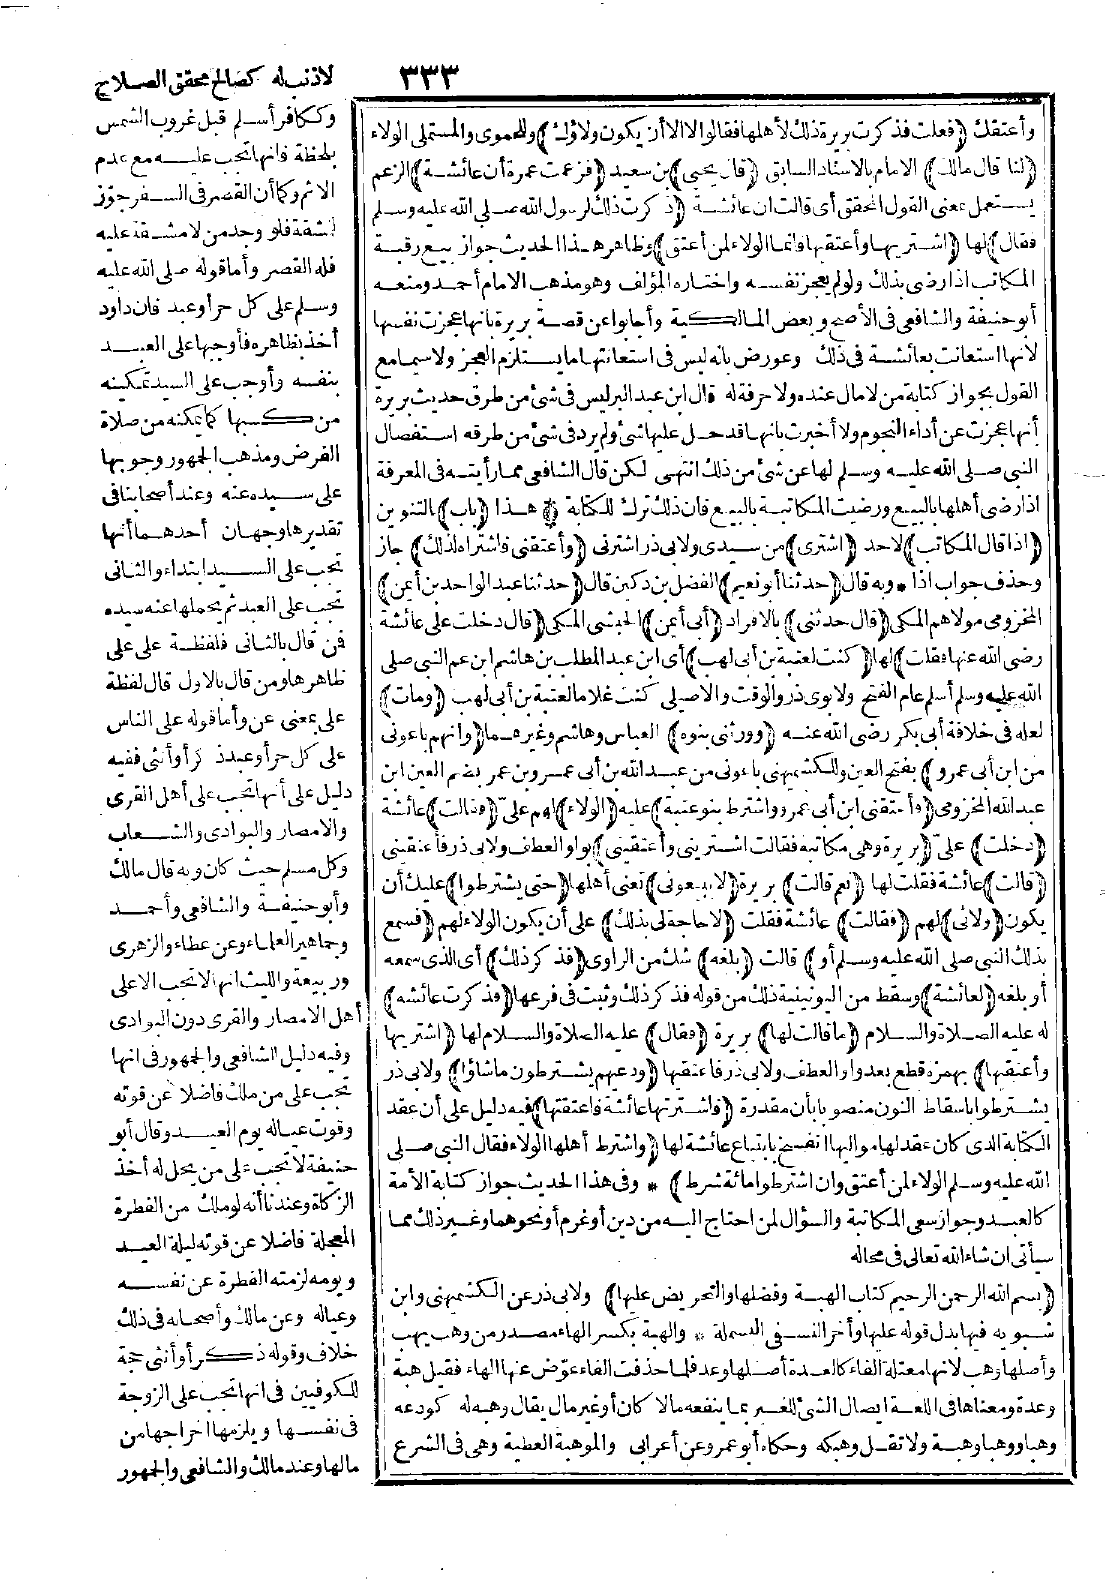 ٣٣٣
وأعتقك (فعلت فذكرت بريرة ذلك لأهلها فقالوا لا الا أن يكون ولاؤك) وللحموى والمستملى الولاء
(لنا قال مالك) الامام بالاسناد السابق (قال يحيى) بن سعيد (فزعمت عمرة أن عائشة) الزعم
يستعمل بمعنى القول المحقق أى قالت ان عائشة (ذكرت ذلك لرسول الله صلى الله عليه وسلم
فقال) لها (اشتريها وأعتقيها فانما الولاء لمن أعتق) وظاهر هذا الحديث جواز بيع رقبة
المكاتب اذا رضى بذلك ولو لم يعجز نفسه واختاره المؤلف وهو مذهب الامام أحمد ومنعه
أبو حنيفة والشافعى فى الأصح وبعض المالكية وأجابوا عن قصة بريرة بأنها عجزت نفسها
لانها استعانت بعائشة فى ذلك وعورض بأنه ليس فى استعانتها ما يستلزم العجز ولا سيما مع
القول بجواز كتابة من لا مال عنده ولا حرفة له قال ابن عبد البر ليس فى شئ من طرق حديث بريرة
أنها عجزت عن أداء النجوم ولا أخبرت بأنها قد حل عليها شئ ولم يرد فى شئ من طرقه استفصال
النبى صلى الله عليه وسلم لها عن شئ من ذلك انتهى لكن قال الشافعى مما رأيته فى المعرفة
اذا رضى أهلها بالبيع ورضيت المكاتبة بالبيع فان ذلك ترك للكتابة * هذا (باب) بالتنوين
(اذا قال المكاتب) لاحد (اشترى) من سيدى ولابى ذر اشترنى (وأعتقنى فاشتراه لذلك) جاز
وحذف جواب اذا * وبه قال (حدثنا أبو نعيم) الفضل بن دكين قال (حدثنا عبد الواحد بن أيمن)
المخزومى مولاهم المكى (قال حدثنى) بالافراد (أبى أيمن) الحبشى المكى (قال دخلت على عائشة
رضى الله عنها فقلت) لها (كنت لعتبة بن أبى لهب) أى ابن عبد المطلب بن هاشم ابن عم النبى صلى
الله عليه وسلم أسلم عام الفتح ولابوى ذر والوقت والاصيلى كنت غلاما لعتبة بن أبى لهب (ومات)
لعله فى خلافة أبى بكر رضى الله عنه (وورثنى بنوه) العباس وهاشم وغيرهما (وانهم باعونى
من ابن أبى عمرو) بفتح العين وللكشميهنى باعونى من عبد الله بن أبى عمرو بن عمر بضم العين ابن
عبد الله المخزومى (فأعتقنى ابن أبى عمرو واشترط بنو عتبة) عليه (الولاء) لهم علىّ (فقالت) عائشة
(دخلت) علىّ (بريرة وهى مكاتبة فقالت اشترينى وأعتقينى) بواو العطف ولابى ذر فأعتقينى
(قالت) عائشة فقلت لها (نعم قالت) بريرة (لا يبيعونى) تعنى أهلها (حتى يشترطوا) عليك أن
يكون (ولائى) لهم (فقالت) عائشة فقلت (لا حاجة لى بذلك) على أن يكون الولاء لهم (فسمع
بذلك النبى صلى الله عليه وسلم أو) قالت (بلغه) شك من الراوى (فذكر ذلك) أى الذى سمعه
أو بلغه (لعائشة) وسقط من اليونينية ذلك من قوله فذكر ذلك وثبت فى فرعها (فذكرت عائشة)
له عليه الصلاة والسلام (ما قالت لها) بريرة (فقال) عليه الصلاة والسلام لها (اشتريها
وأعتقيها) بهمزة قطع بعد واو العطف ولابى ذر فاعتقيها (ودعيهم يشترطون ما شاؤا) ولابى ذر
يشترطوا باسقاط النون منصوبا بأن مقدرة (فاشترتها عائشة فاعتقتها) فيه دليل على أن عقد
الكتابة الذى كان عقد لها مواليها انفسخ بابتياع عائشة لها (واشترط أهلها الولاء فقال النبى صلى
الله عليه وسلم الولاء لمن أعتق وان اشترطوا مائة شرط) * وفى هذا الحديث جواز كتابة الأمة
كالعبد وجواز سعى المكاتبة والسؤال لمن احتاج اليه من دين أو غرم أو نحوهما وغير ذلك مما
سيأتى ان شاء الله تعالى فى محاله
(بسم الله الرحمن الرحيم كتاب الهبة وفضلها والتحريض عليها) ولابى ذر عن الكشميهنى وابن
شبويه فيها بدل قوله عليها وأخر النسفى البسملة * والهبة بكسر الهاء مصدر من وهب يهب
وأصلها وهب لانها معتلة الفاء كالعدة أصلها وعد فلما حذفت الفاء عوّض عنها الهاء فقيل هبة
وعدة ومعناها فى اللغة ايصال الشئ للغير بما ينفعه مالا كان أو غير مال يقال وهب له كودعه
وهبا ووهبا وهبة ولا تقل وهبكه وحكاه أبو عمرو عن أعرابى والموهبة العطية وهى فى الشرع
لا ذنب له كصالح محقق الصلاح
وككافر أسلم قبل غروب الشمس
بلحظة فانها تجب عليه مع عدم
الاثم وكما أن القصر فى السفر جوّز
لمشقة فلو وجد من لا مشقة عليه
فله القصر وأما قوله صلى الله عليه
وسلم على كل حر أو عبد فان داود
أخذ بظاهره فأوجبها على العبد
بنفسه وأوجب على السيد تمكينه
من كسبها كما يمكنه من صلاة
الفرض ومذهب الجمهور وجوبها
على سيده عنه وعند أصحابنا فى
تقديرها وجهان أحدهما أنها
تجب على السيد ابتداء والثانى
تجب على العبد ثم يحملها عنه سيده
فمن قال بالثانى فلفظة على على
ظاهرها ومن قال بالاول قال لفظة
على بمعنى عن وأما قوله على الناس
على كل حر أو عبد ذكر أو أنثى ففيه
دليل على أنها تجب على أهل القرى
والامصار والبوادى والشعاب
وكل مسلم حيث كان وبه قال مالك
وأبو حنيفة والشافعى وأحمد
وجماهير العلماء وعن عطاء والزهرى
وربيعة والليث انها لا تجب الا على
أهل الامصار والقرى دون البوادى
وفيه دليل الشافعى والجمهور فى انها
تجب على من ملك فاضلا عن قوته
وقوت عياله يوم العيد وقال أبو
حنيفة لا تجب على من يحل له أخذ
الزكاة وعندنا أنه لو ملك من الفطرة
المعجلة فاضلا عن قوته ليلة العيد
ويومه لزمته الفطرة عن نفسه
وعياله وعن مالك وأصحابه فى ذلك
خلاف وقوله ذكر أو أنثى حجة
للكوفيين فى انها تجب على الزوجة
فى نفسها ويلزمها اخراجها من
مالها وعند مالك والشافعى والجمهور